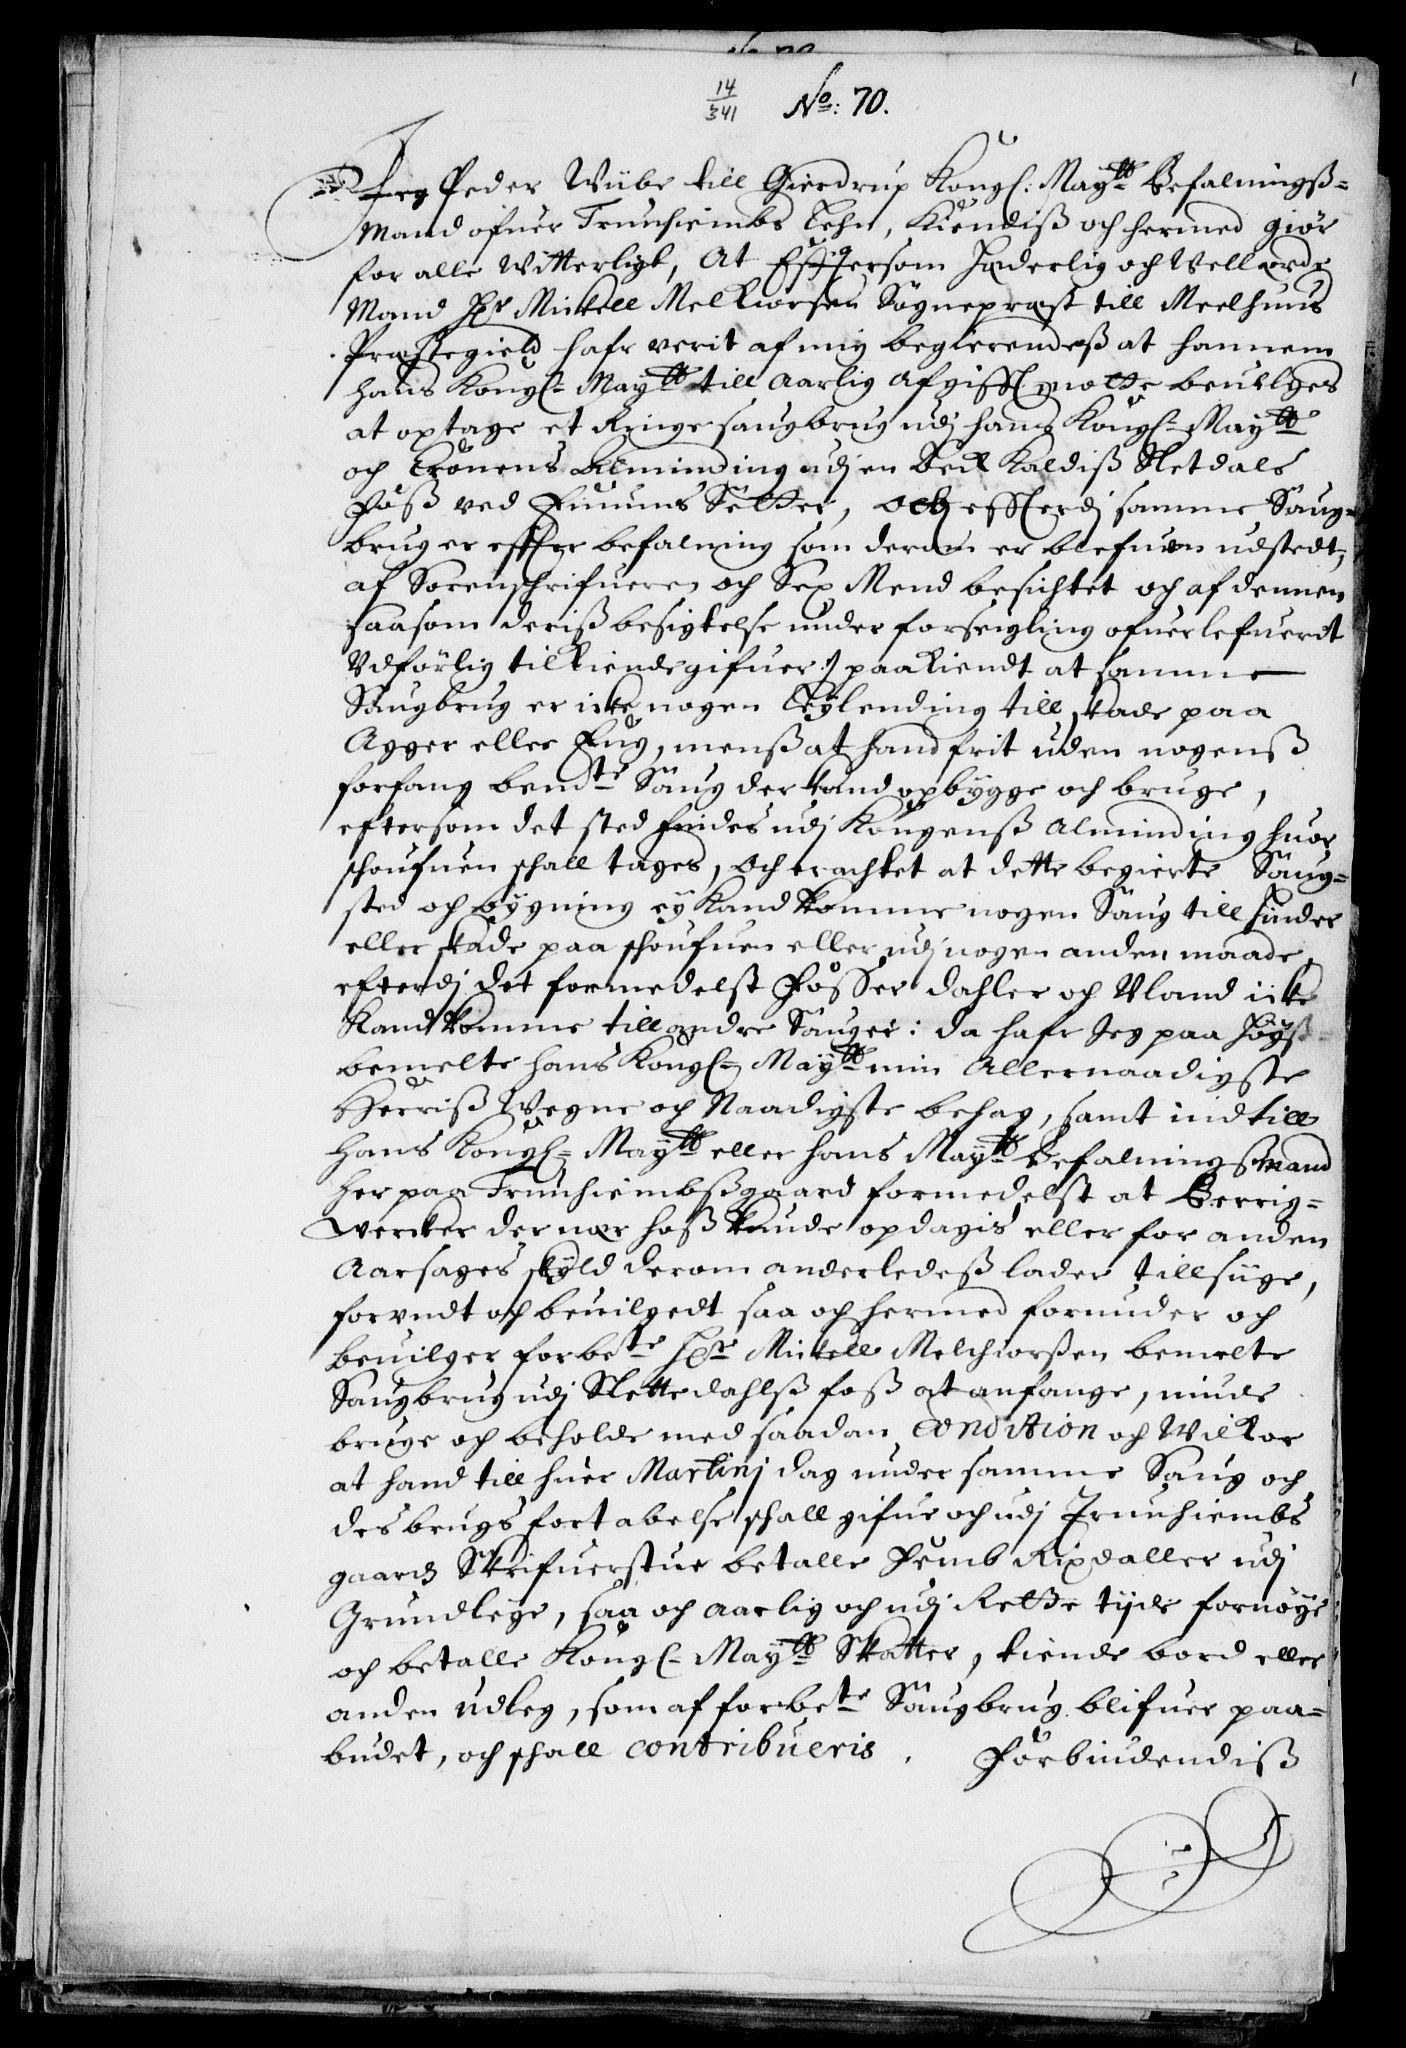 1
14/341 No: 70.
Jeg Peder Wiibe till Gierdrup Kongl: Maytt Befalningß=
Mand ofuer Trunhiembs Lehn, Kiendiß och hermed giör
for alle Witterligt, At Efftersom Hæderlig och Vellærde
Mand Hr Mickell Melkiorsen Sognepræst till Meelhuus
Præstegield hafr verit af mig begierendeß at hannem
hans Kongl= Maytt till Aarlig Afgifft motte beuilges
at optage et Ringe saugbrug udj hans Kongl= Maytt
och Cronens Alminding udj en Beck Kaldiß Sletdals
Foß ved Enums Setter, och effterdj samme Saug=
brug er effter befalning som derom er blefuen udstedt,
af Sorenschrifueren och Sex Mend besichtet och af dennem
saasom deriß besigtelse under forseigling ofuerlefuerit
Vdförlig tilkiende gifuer:/ paakiendt at samme
Saugbrug er icke nogen Leylending till skade paa
Agger eller Eng, menß at hand frit uden nogenß
forfang bemte Saug der kand opbygge och bruge,
eftersom det sted findes udj Kongenß Alminding huor
schoufuen schall tages, Och erachtet at dette begierte Saug=
sted och bygning ey Kand komme nogen Saug till hinder
eller skade paa schoufuen eller udj nogen anden maade,
efterdj det formedelst Fosser dahler och Vland icke
Kand komme till andre Sauger: da hafr Jeg paa höyst=
bemelte hans Kongl= Maytt min Allernaadigste
Herriß Wegne och Naadigste behag, samt indtill
hans Kongl= Maytt eller hans Maytt Befalningßmand
her paa Trunhiembßgaard formedelst at Berrig=
wercker der nær hoß kunde opdagis eller for anden
Aarsages skyld derom anderledeß lader tillsiige,
forundt och beuilgedt saa och hermed forunder och
beuilger forbete Hr Mickell Melchiorßen bemelte
Saugbrug udj Slettedahlß foß at anfange, niude
bruge och beholde med saadan Condition och Wilkor
at hand till huer Martinj dag under samme Saug och
des brugs fortabelse schall gifue och udj Trunhiembs
gaards Skrifuerstue betalle Femb Rixdaller udj
Grundleye, saa och aarlig och udj Rette tijde fornöye
och betalle Kongl= Maytt Skatter, tiende bord eller
anden udleg, som af forbete Saugbrug blifuer paa=
budet, och schall contribueris. Forbindendiß